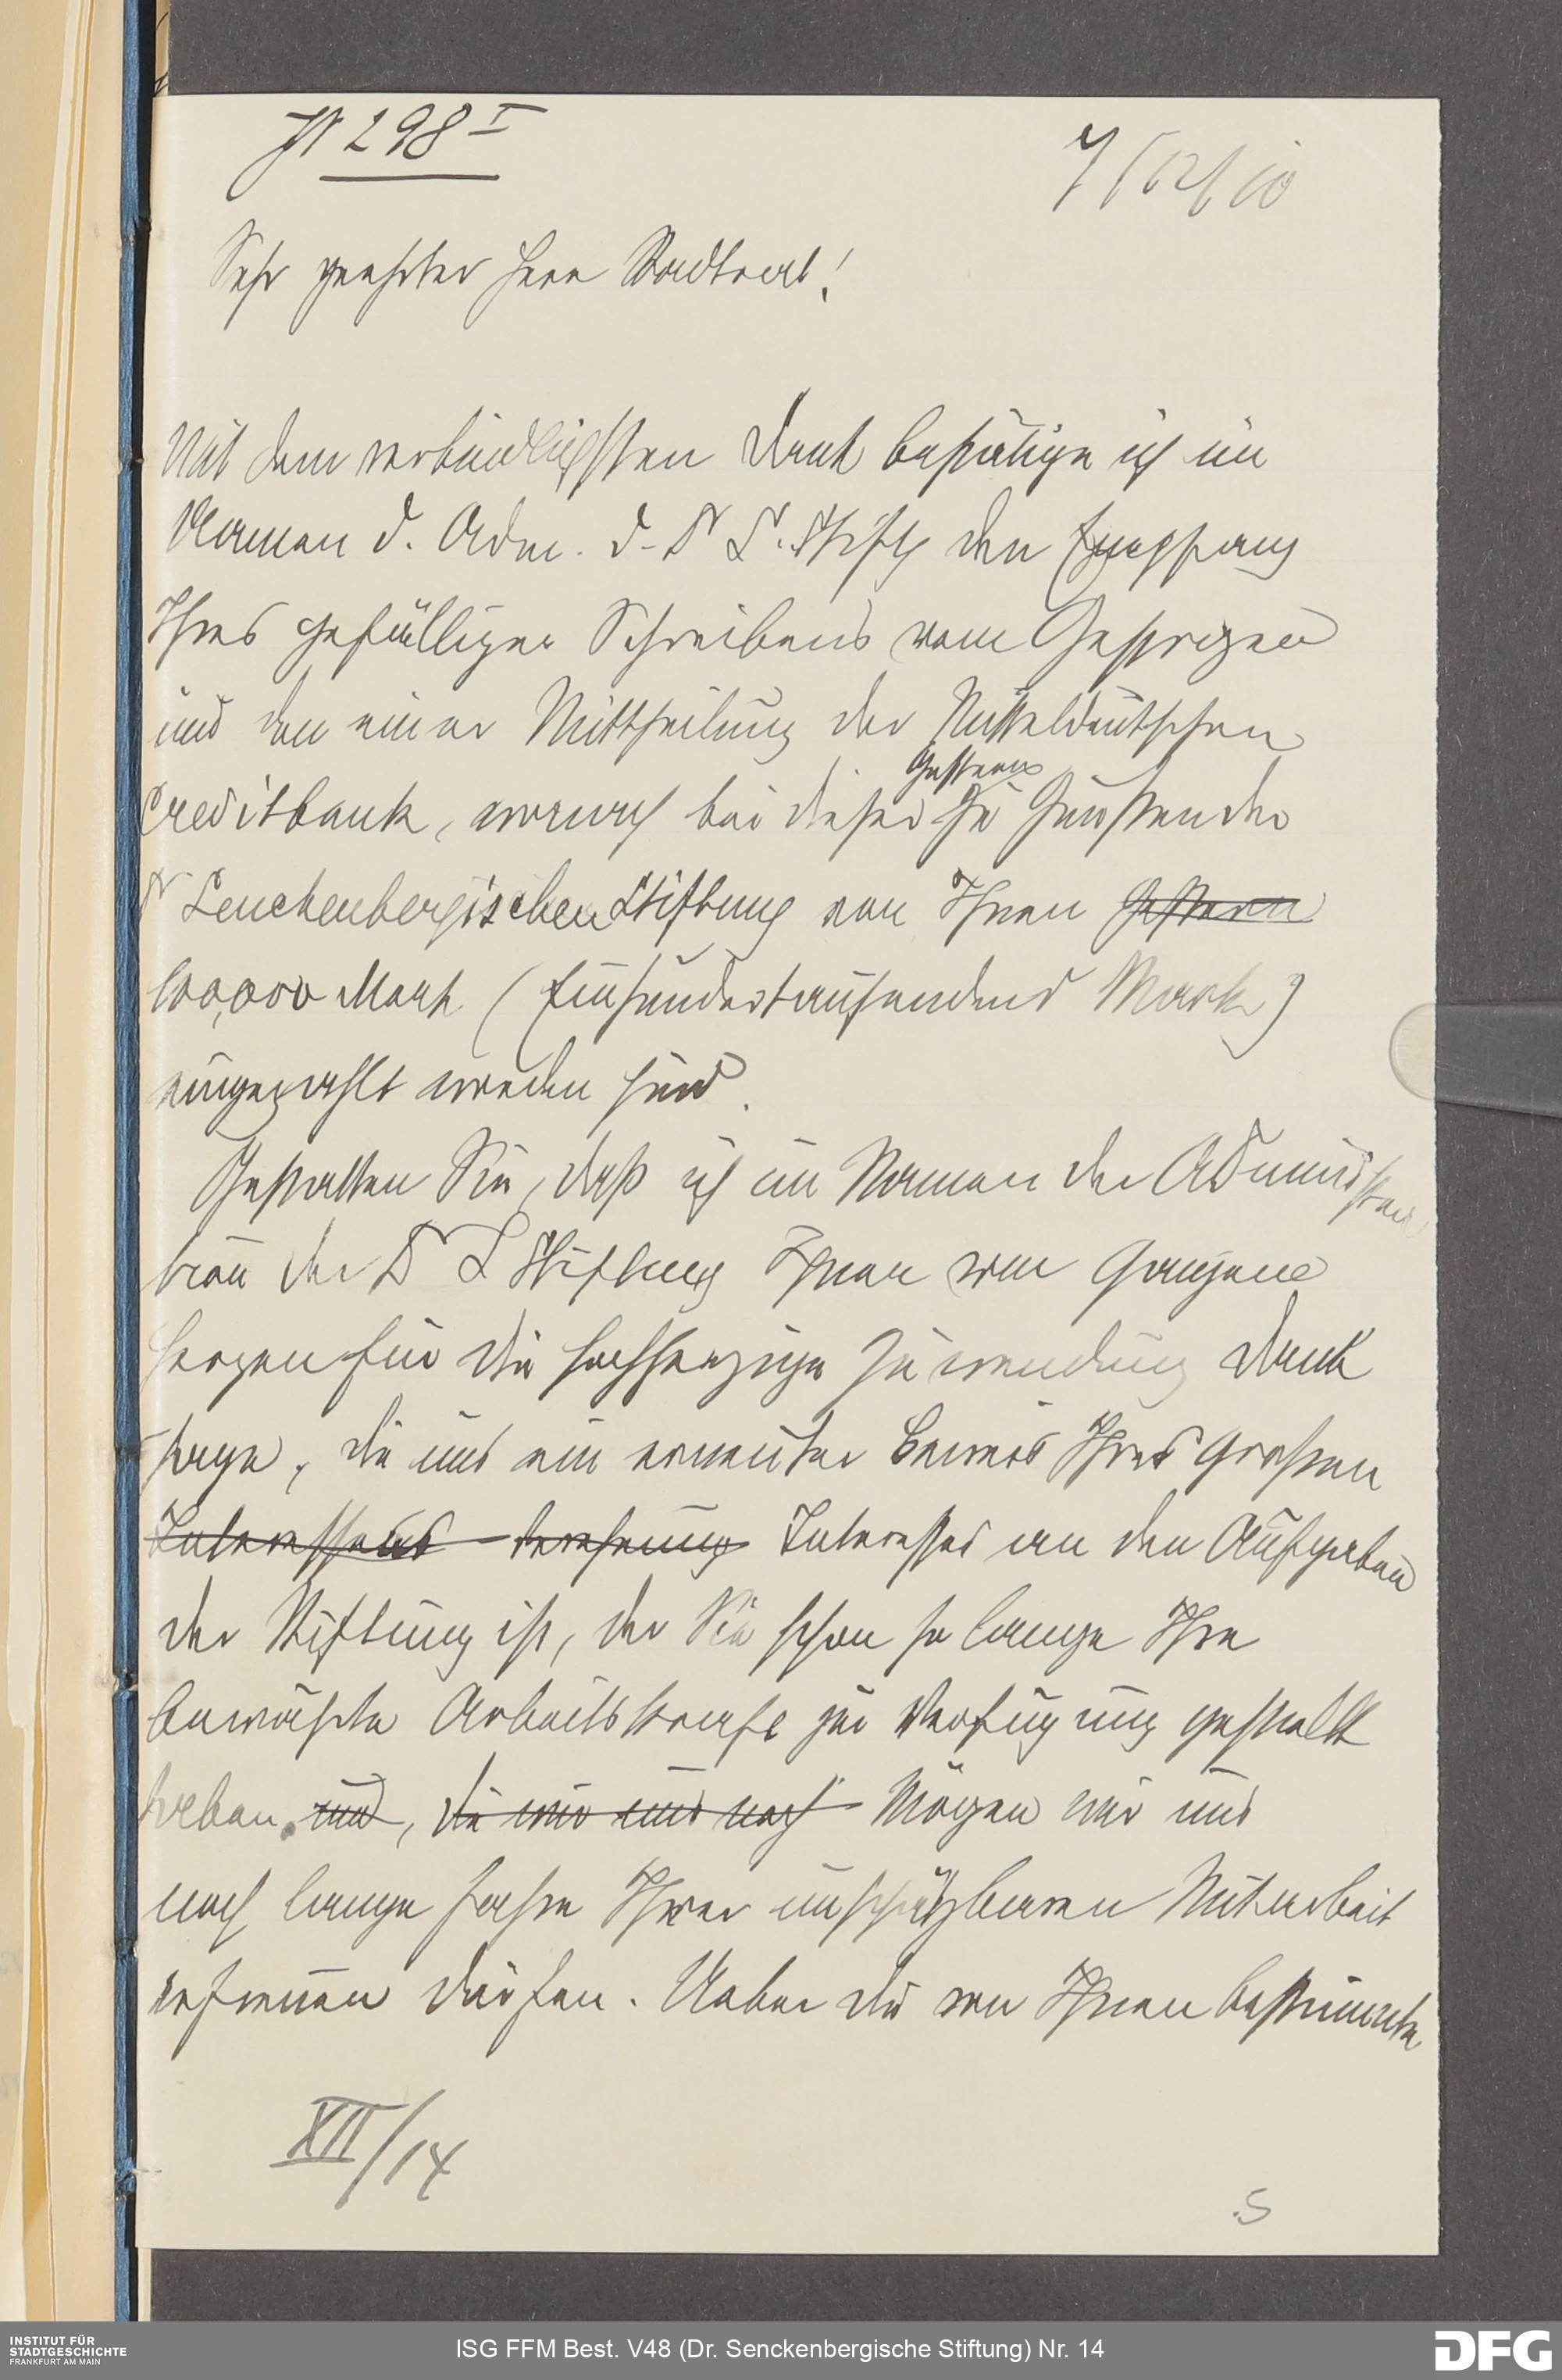 JN 298 I
7/12/10
Sehr geehrter Herr Stadtrat!
Mit dem verbindlichsten Dank bestätige ich im
Namen d. Adm. d. Dr S. Stiftg den Empfang
Ihres gefälligen Schreibens vom Gestrigen
und den einer Mittheilung der Mitteldeutschen
Gestern
Creditbank, wonach bei dieser zu Gunsten der
Dr Senckenbergischen Stiftung von Ihnen gestern
100,000 Mark (Einhunderttausend Mark)
eingezahlt worden sind.
Gestatten Sie, daß ich im Namen der Administra
tion der Dr S Stiftung Ihnen von Ganzem
Herzen für die hochherzige Zuwendung Dank
sage, die uns ein erneuter Beweis Ihres großen
Interesses an den Aufgaben
der Stiftung ist, der Sie schon so lange Ihre
bewährte Arbeitskraft zur Verfügung gestellt
haben. und, die wir uns noch Mögen wir uns
noch lange Jahre Ihrer unschätzbaren Mitarbeit
erfreuen dürfen. Ueber die von Ihnen bestimmte
XII/14
5
INSTITUT FÜR
STADTGESCHICHTE
FRANKFURT AM MAIN
ISG FFM Best. V48 (Dr. Senckenbergische Stiftung) Nr. 14
DFG